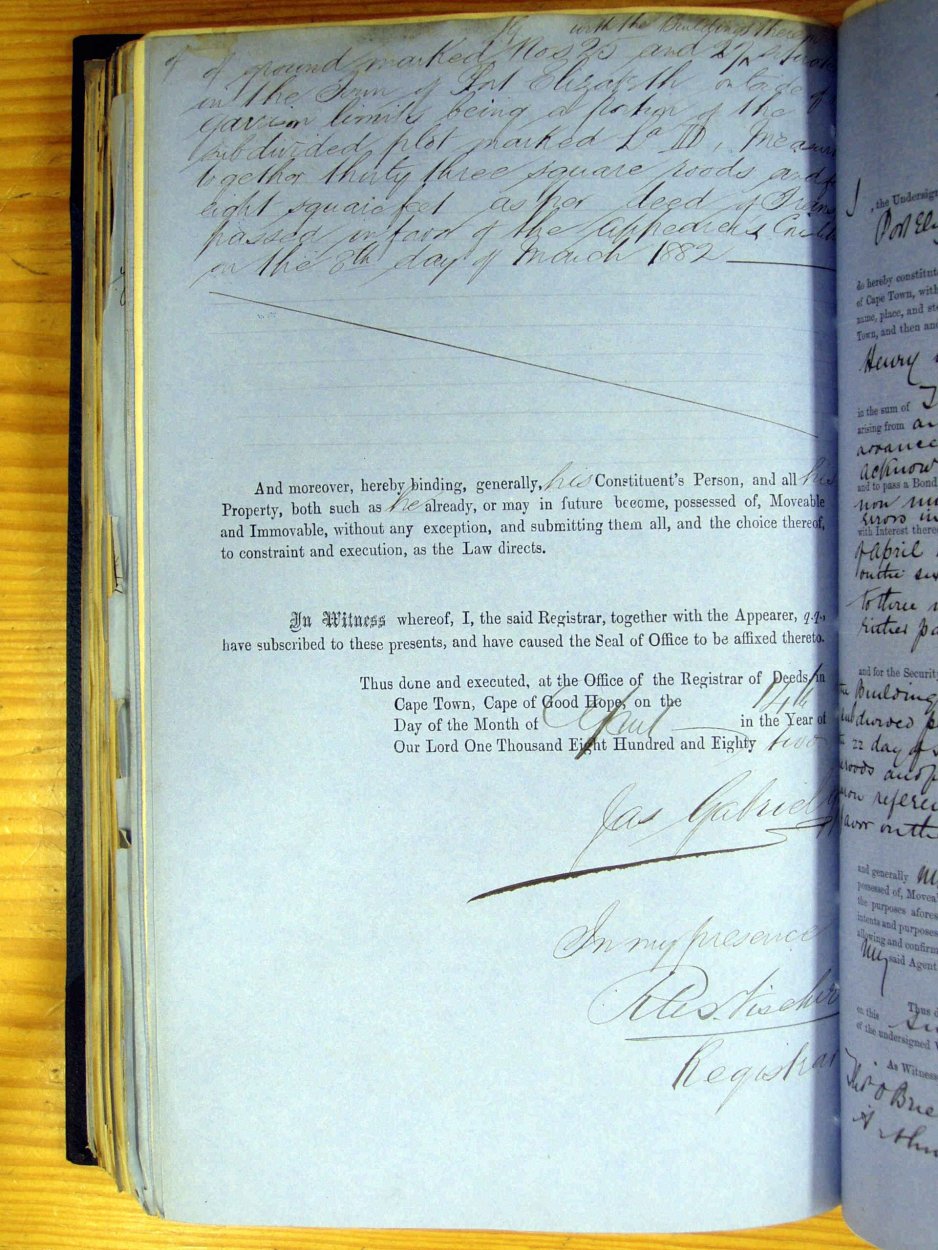 with the Buildings thereon
of ground marked Nos 25 and 27
in the Town of Port Elizabeth outside of
limits being a portion of the
subdivided plot marked La III, Measuring
together thirty three square roods and
eight square feet as per deed of
passed in favor of the appearer's
on the 8th day of March 1882
And moreover, hereby binding, generally, his Constituent's Person, and all his
Property, both such as he already, or may in future become, possessed of, Moveable
and Immovable, without any exception, and submitting them all, and the choice thereof,
to constraint and execution, as the Law directs.
In Witness whereof, I, the said Registrar, together with the Appearer, q.q.,
have subscribed to these presents, and have caused the Seal of Office to be affixed thereto.
Thus done and executed, at the Office of the Registrar of Deeds, in
Cape Town, Cape of Good Hope, on the 14th
Day of the Month of April in the Year of
Our Lord One Thousand Eight Hundred and Eighty two
Jas Gabriel
In my presence
Registrar
I, the Undersign
Port Eli
do hereby constitut
of Cape Town, with
name, place, and ste
Town, and then an
Henry
in the sum of
arising from
advance
acknow
and to pass a Bond
non nu
errors in
with Interest there
of April
on the six
to three
either pa
and for the Securit
Building
22 day of
roods and
refere
favor on th
and generally my
possessed of, Movea
the purposes afores
intents and purposes
allowing and confirm
My said Agent
Thus d
on this
of the undersigned W
As Witness
O'Brie
Arthu